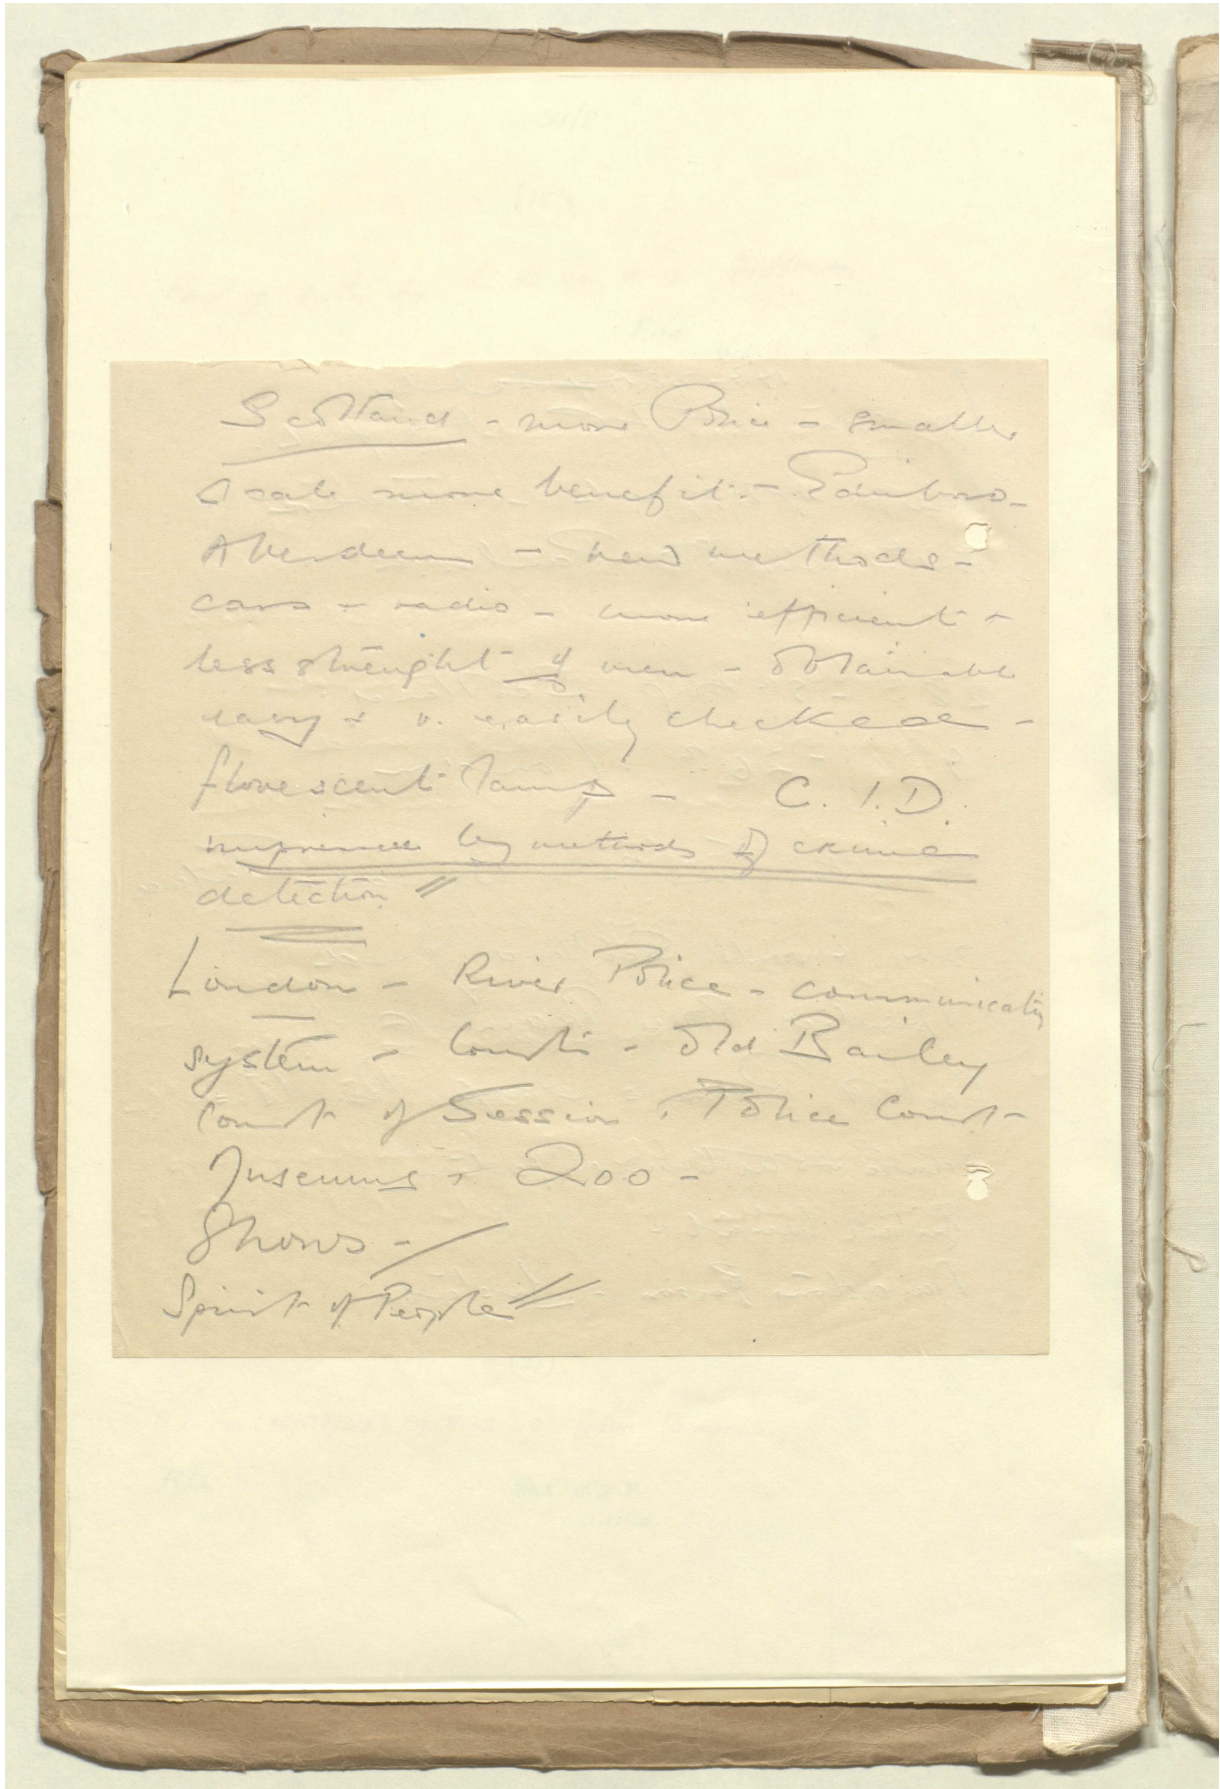 Scotland - more Police - smaller
scale more benefit. - Edinboro -
Aberdeen - new methods -
cars + radio - more efficient +
less strenght of men - obtainable
easy + v. easily checked -
flourescent lamps - C.I.D.
impressed by methods of crime
detection //
London - River Police - communicating
system - Courts - Old Bailey
Court of Session, Police Court
Museums + Zoo -
Shows - /
Spirit of People //